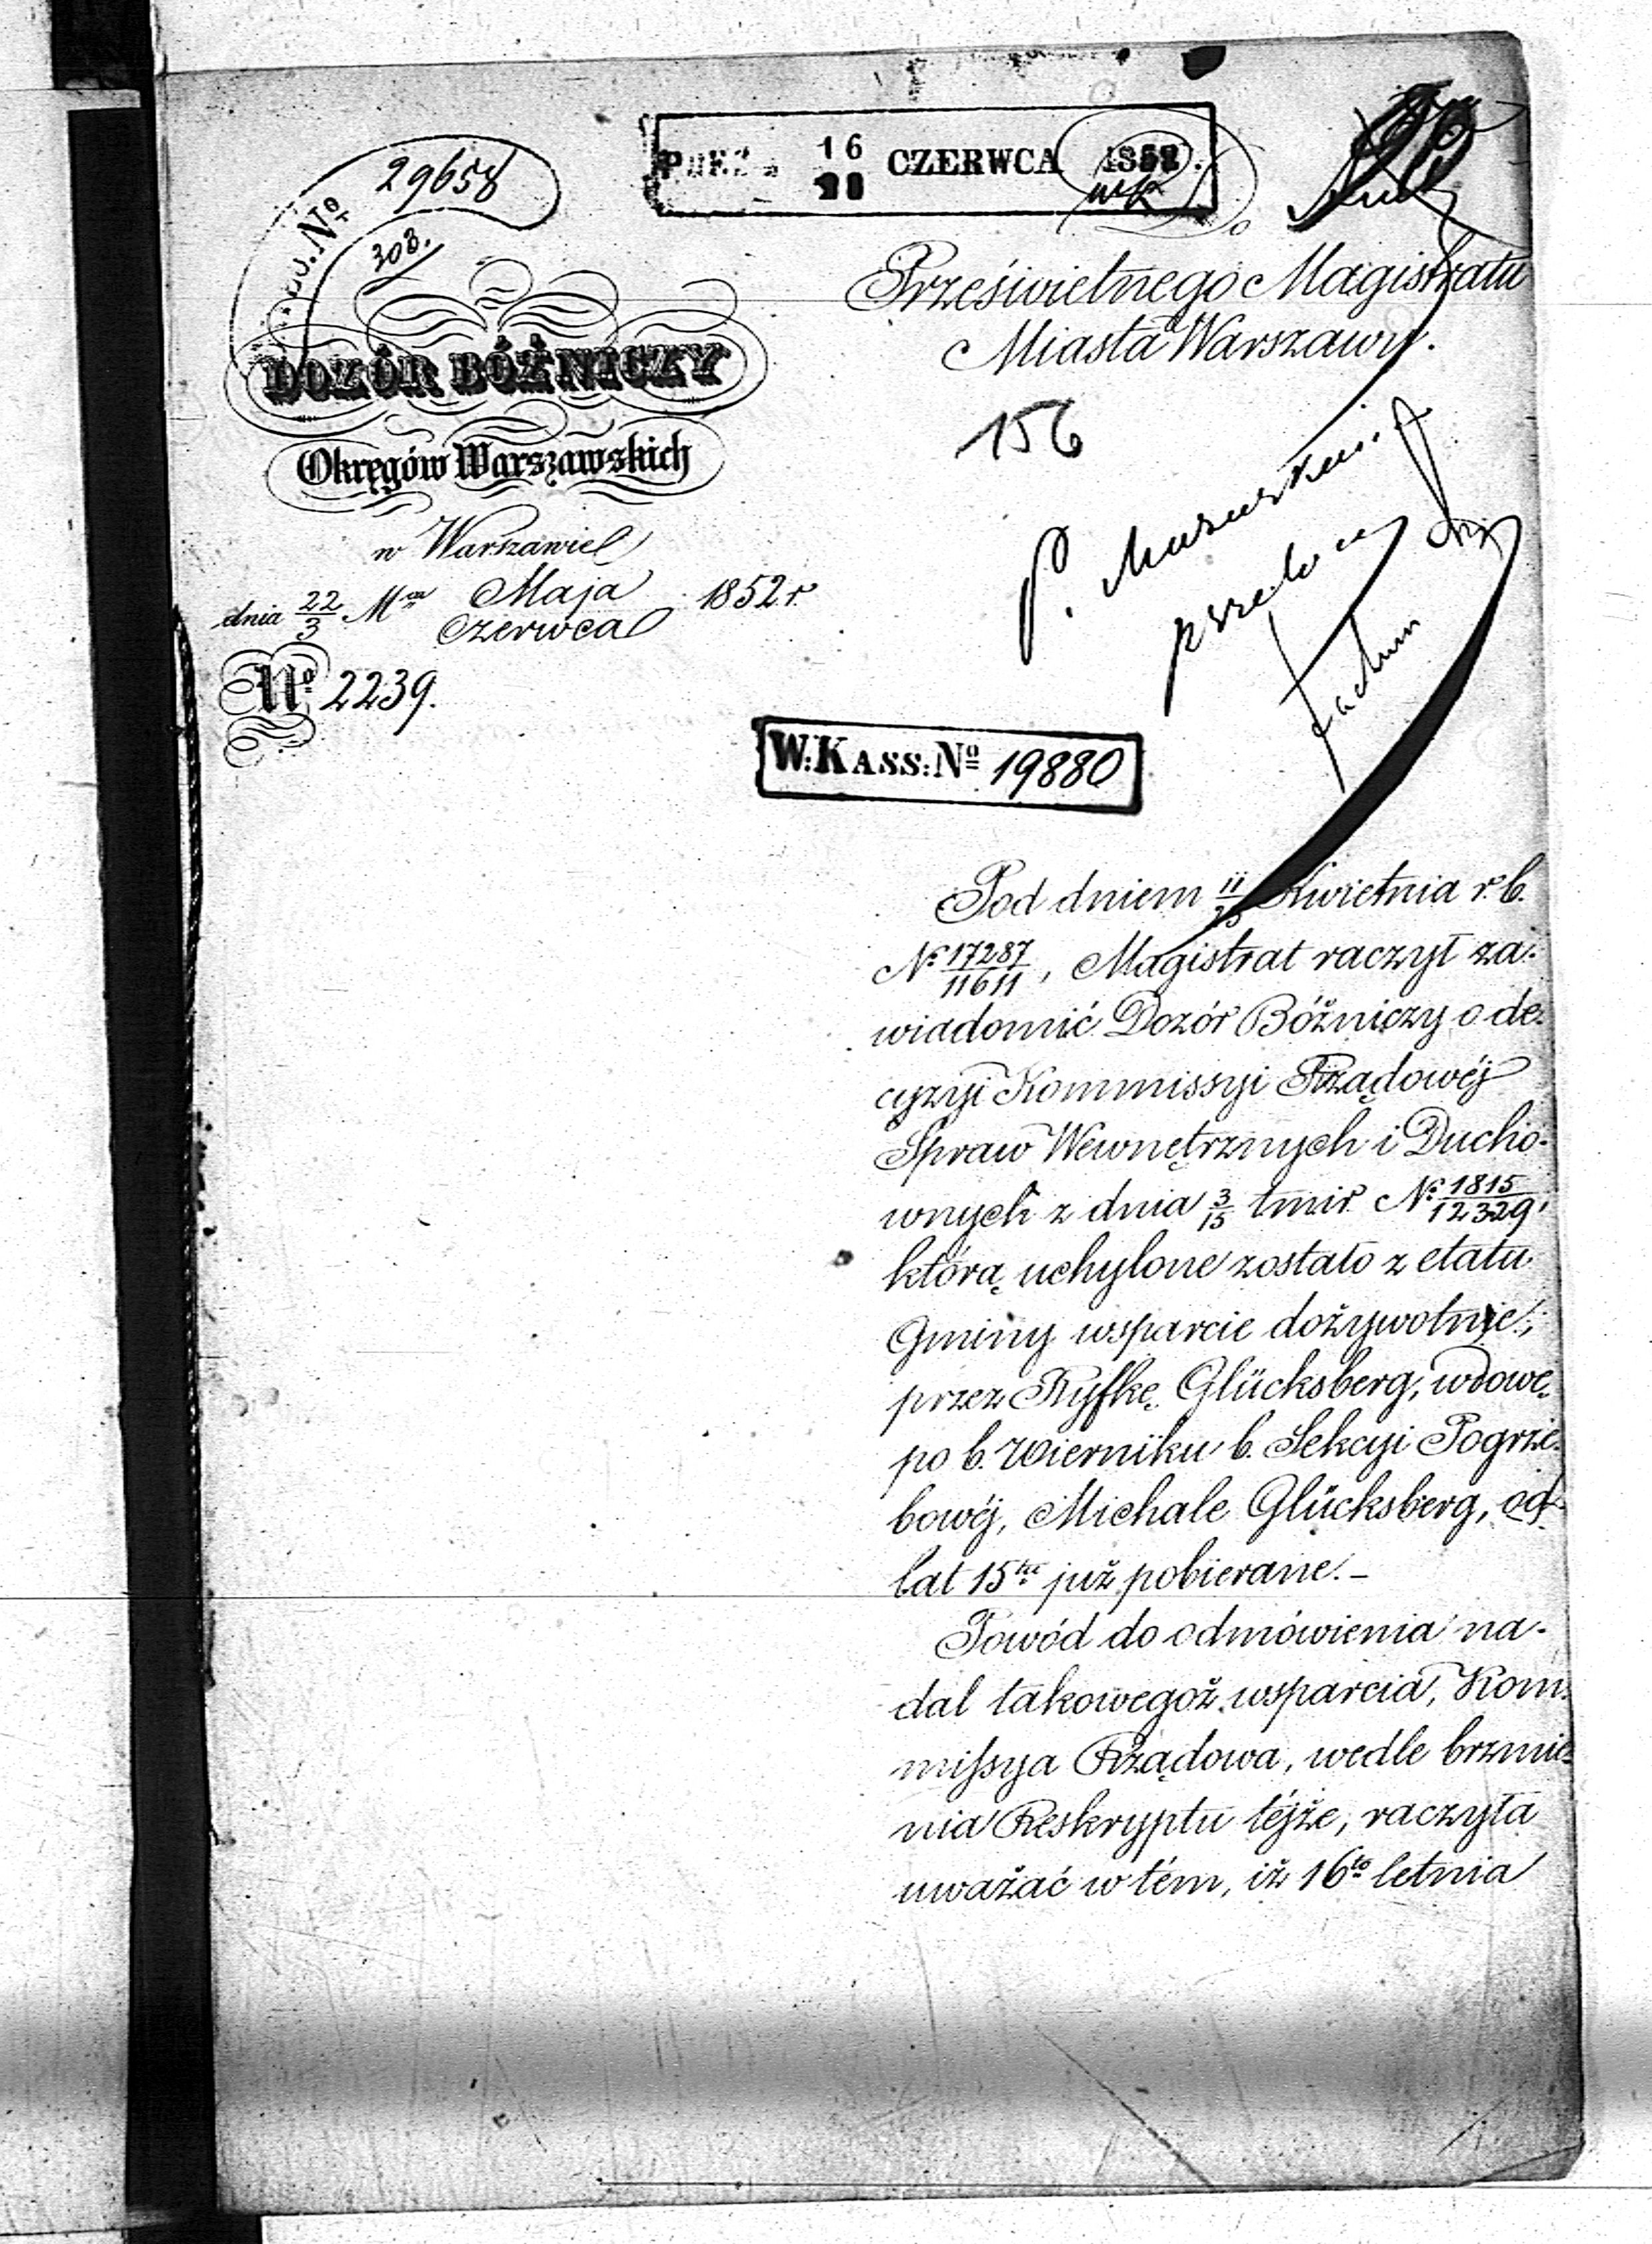 No 29658
303.
16
28 CZERWCA 1852.
DOZÓR BÓŻNICZY
Okręgów Warszawskich
w Warszawie
dnia 22/3 Mca Maja/Czerwca 1852 r.
No 2239.
Prześwietnego Magistratu
Miasta Warszawy.
156
P.
W: KASS: No 19880
Pod dniem 11/23 Kwietnia r. b.
No 17287/11611, Magistrat raczył za-
wiadomić Dozór Bóżniczy o de-
cyzyi Kommissyi Rządowéj
Spraw Wewnętrznych i Ducho-
wnych z dnia 3/15 tmir No 1815/12329,
którą uchylone zostało z etatu
Gminy wsparcie dożywotnie,
przez Ryfkę Glücksberg, wdowę
po b. Wierniku b. Sekcyi Pogrze-
bowéj, Michale Glücksberg, od
lat 15tu już pobierane. –
Powód do odmówienia na-
dal takowegoż wsparcia, Kom-
missya Rządowa, wedle brzmie-
nia Reskryptu téjże, raczyła
uważać w tém, iż 16to letnia